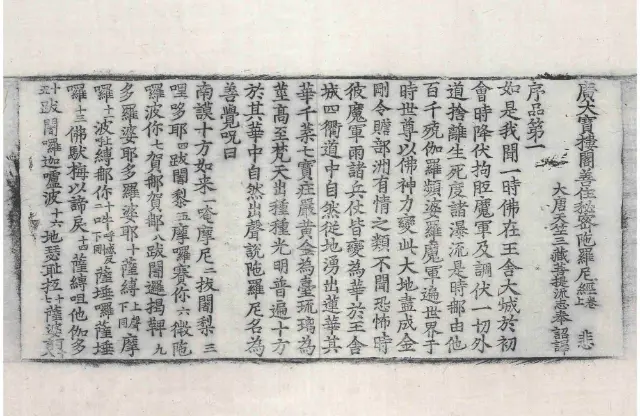 廣大寶樓閣善住秘密陁羅尼經卷上 悲
大唐天竺三藏菩提流志奉 詔譯
序品第一
如是我聞一時佛在王舍大城於初
會時降伏拘胝魔軍及調伏一切外
道捨離生死度諸瀑流是時都由他
百千殑伽羅頻婆羅魔軍遍世界于
時世尊以佛神力變此大地盡成金
剛令贍部洲有情之類不聞恐怖時
彼魔軍雨諸兵仗皆變為華於王舍
城四衢道中自然従地湧出蓮華其
華千葉七寶庄嚴黃金為臺琉璃為
莖高至梵天出種種光明普遍十方
於其華中自然出聲說陁羅尼名為
善覺呪曰
南謨十方如来一唵摩尼二抜闍梨三
哩哆耶四跋闍梨五摩羅賽你六微陁
羅波你七賀郍賀郍八跋闍邏揭鞞九
多羅婆耶多羅婆耶十薩縛下同摩
羅十一波㘑縛都你十二吽薩埵囉薩埵
囉十三佛馱梅以諦戾十四薩縛呾他伽多
十五跋闍囉迦嚧波十六地瑟耻羝十七薩婆